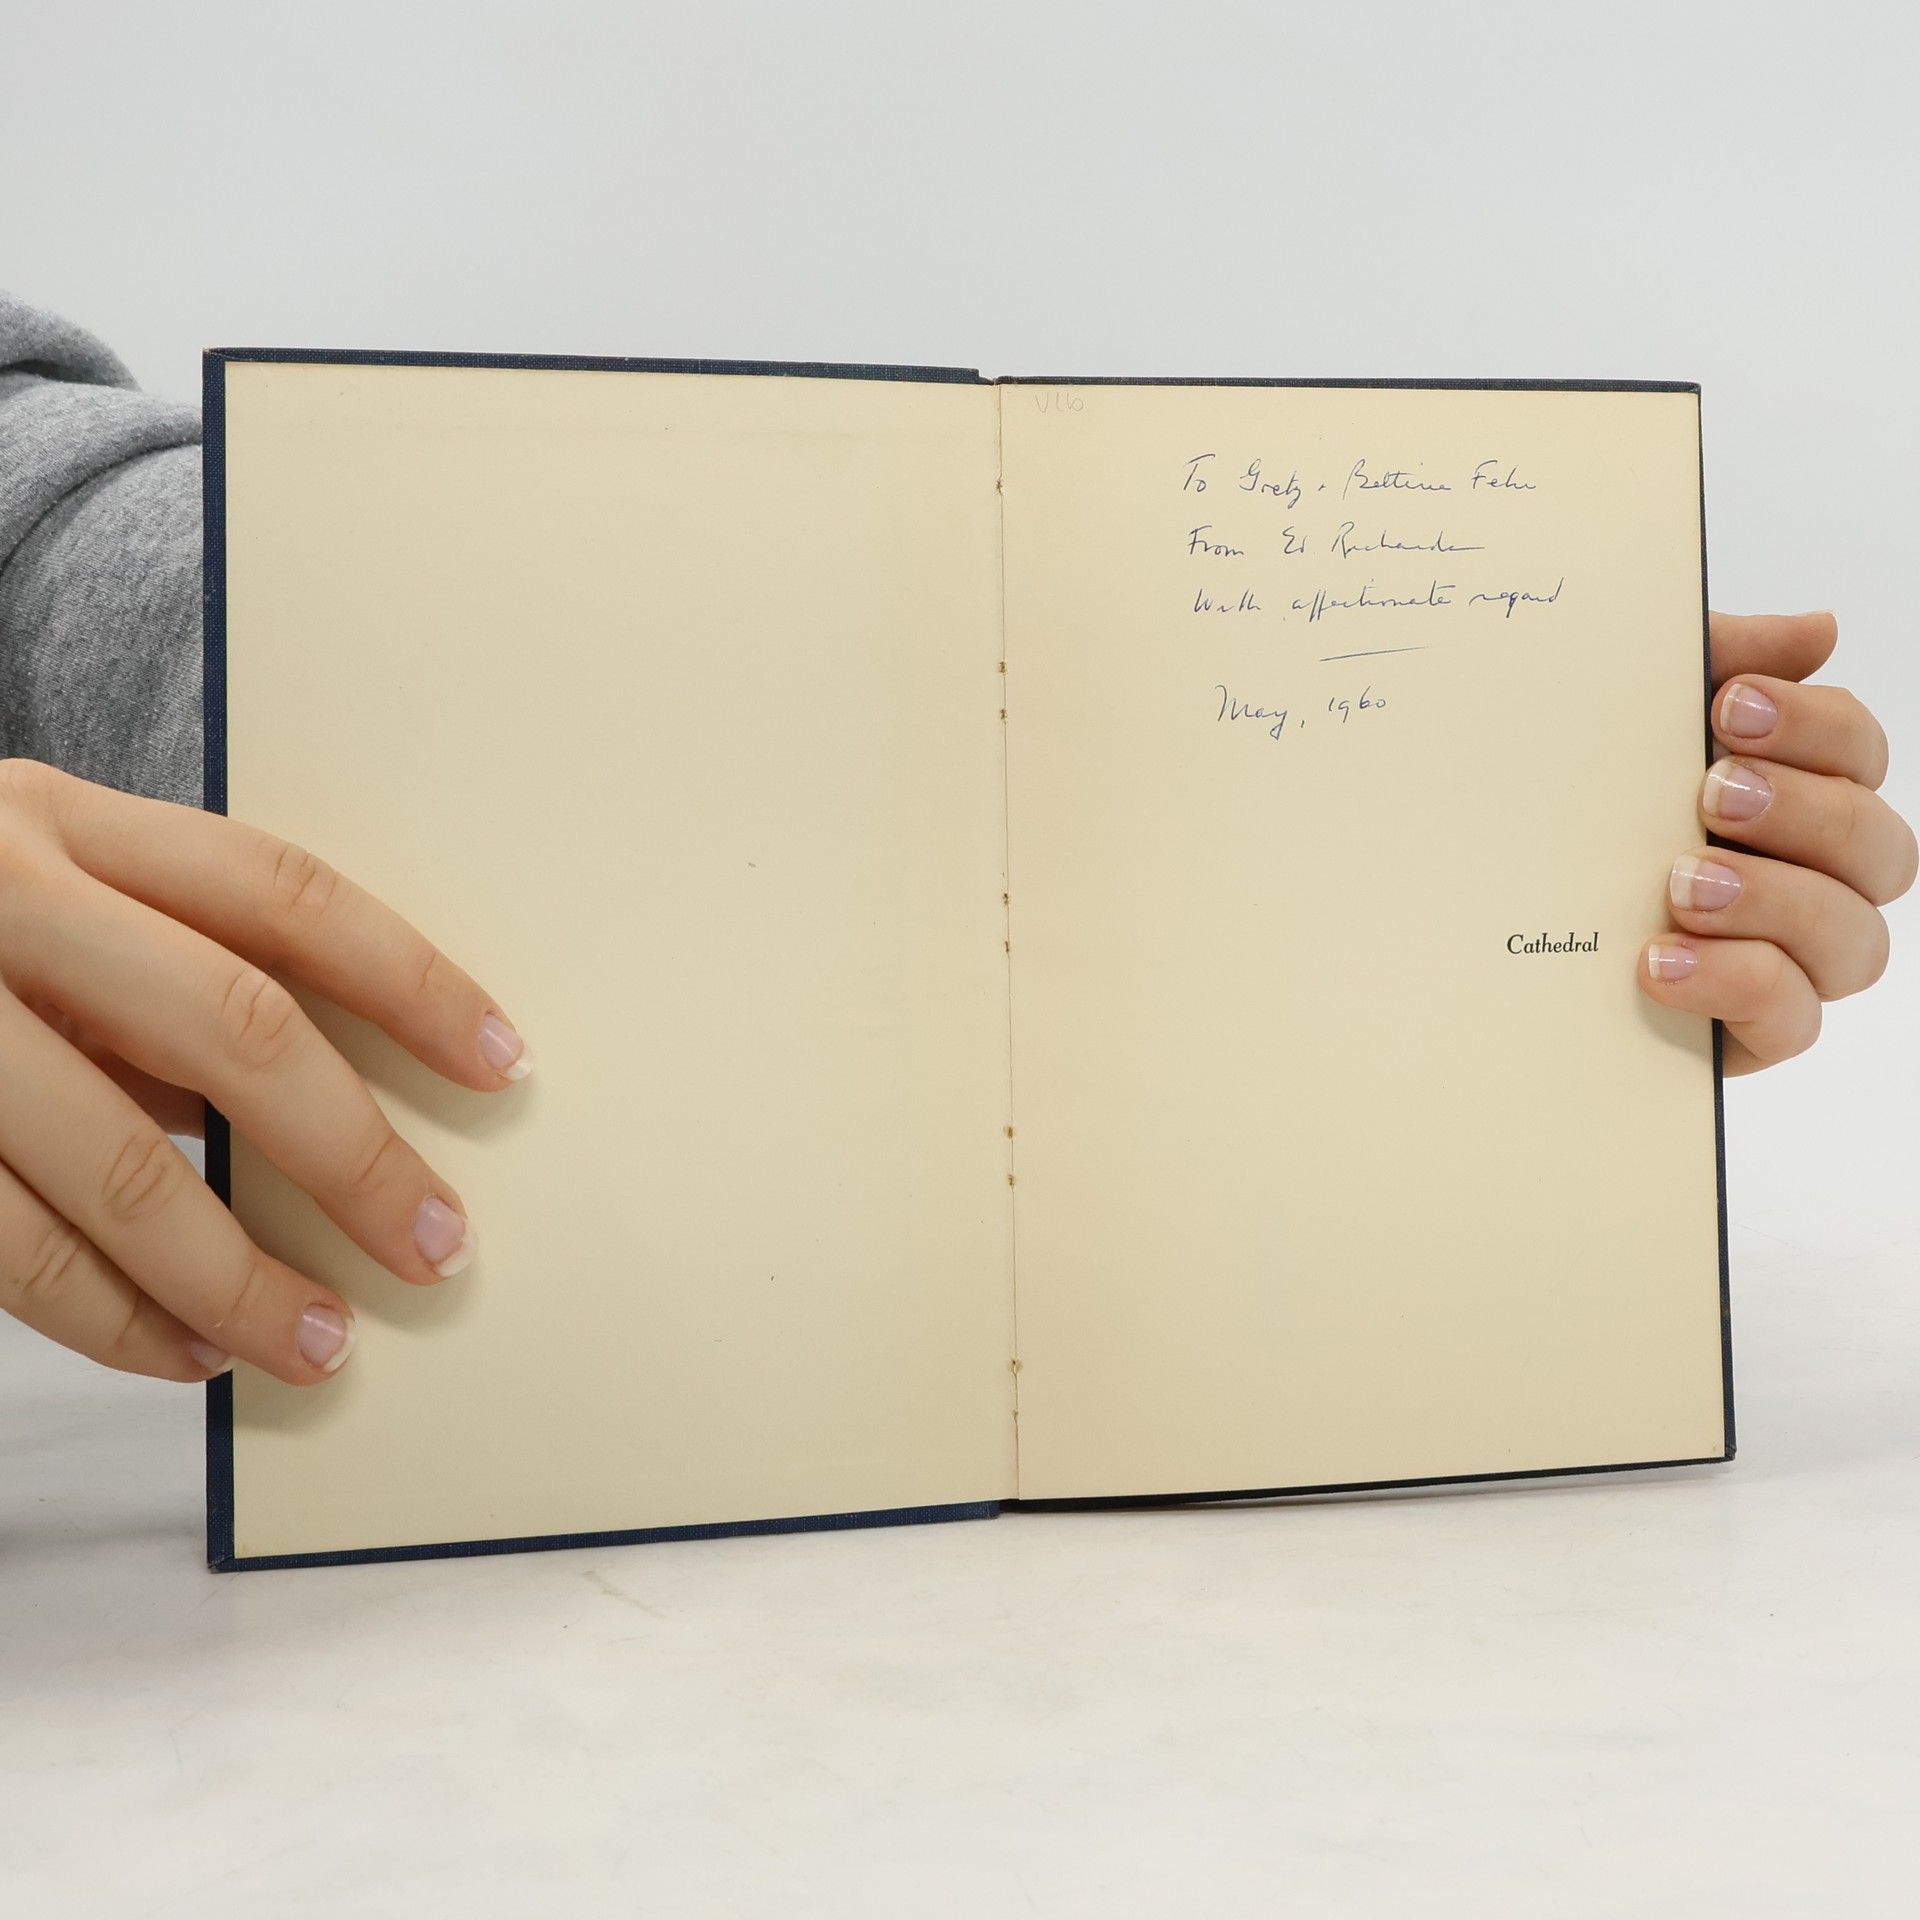 V16
To Grety + Bettina Fehr
From Ed Richards
With affectionate regard
May, 1960
Cathedral